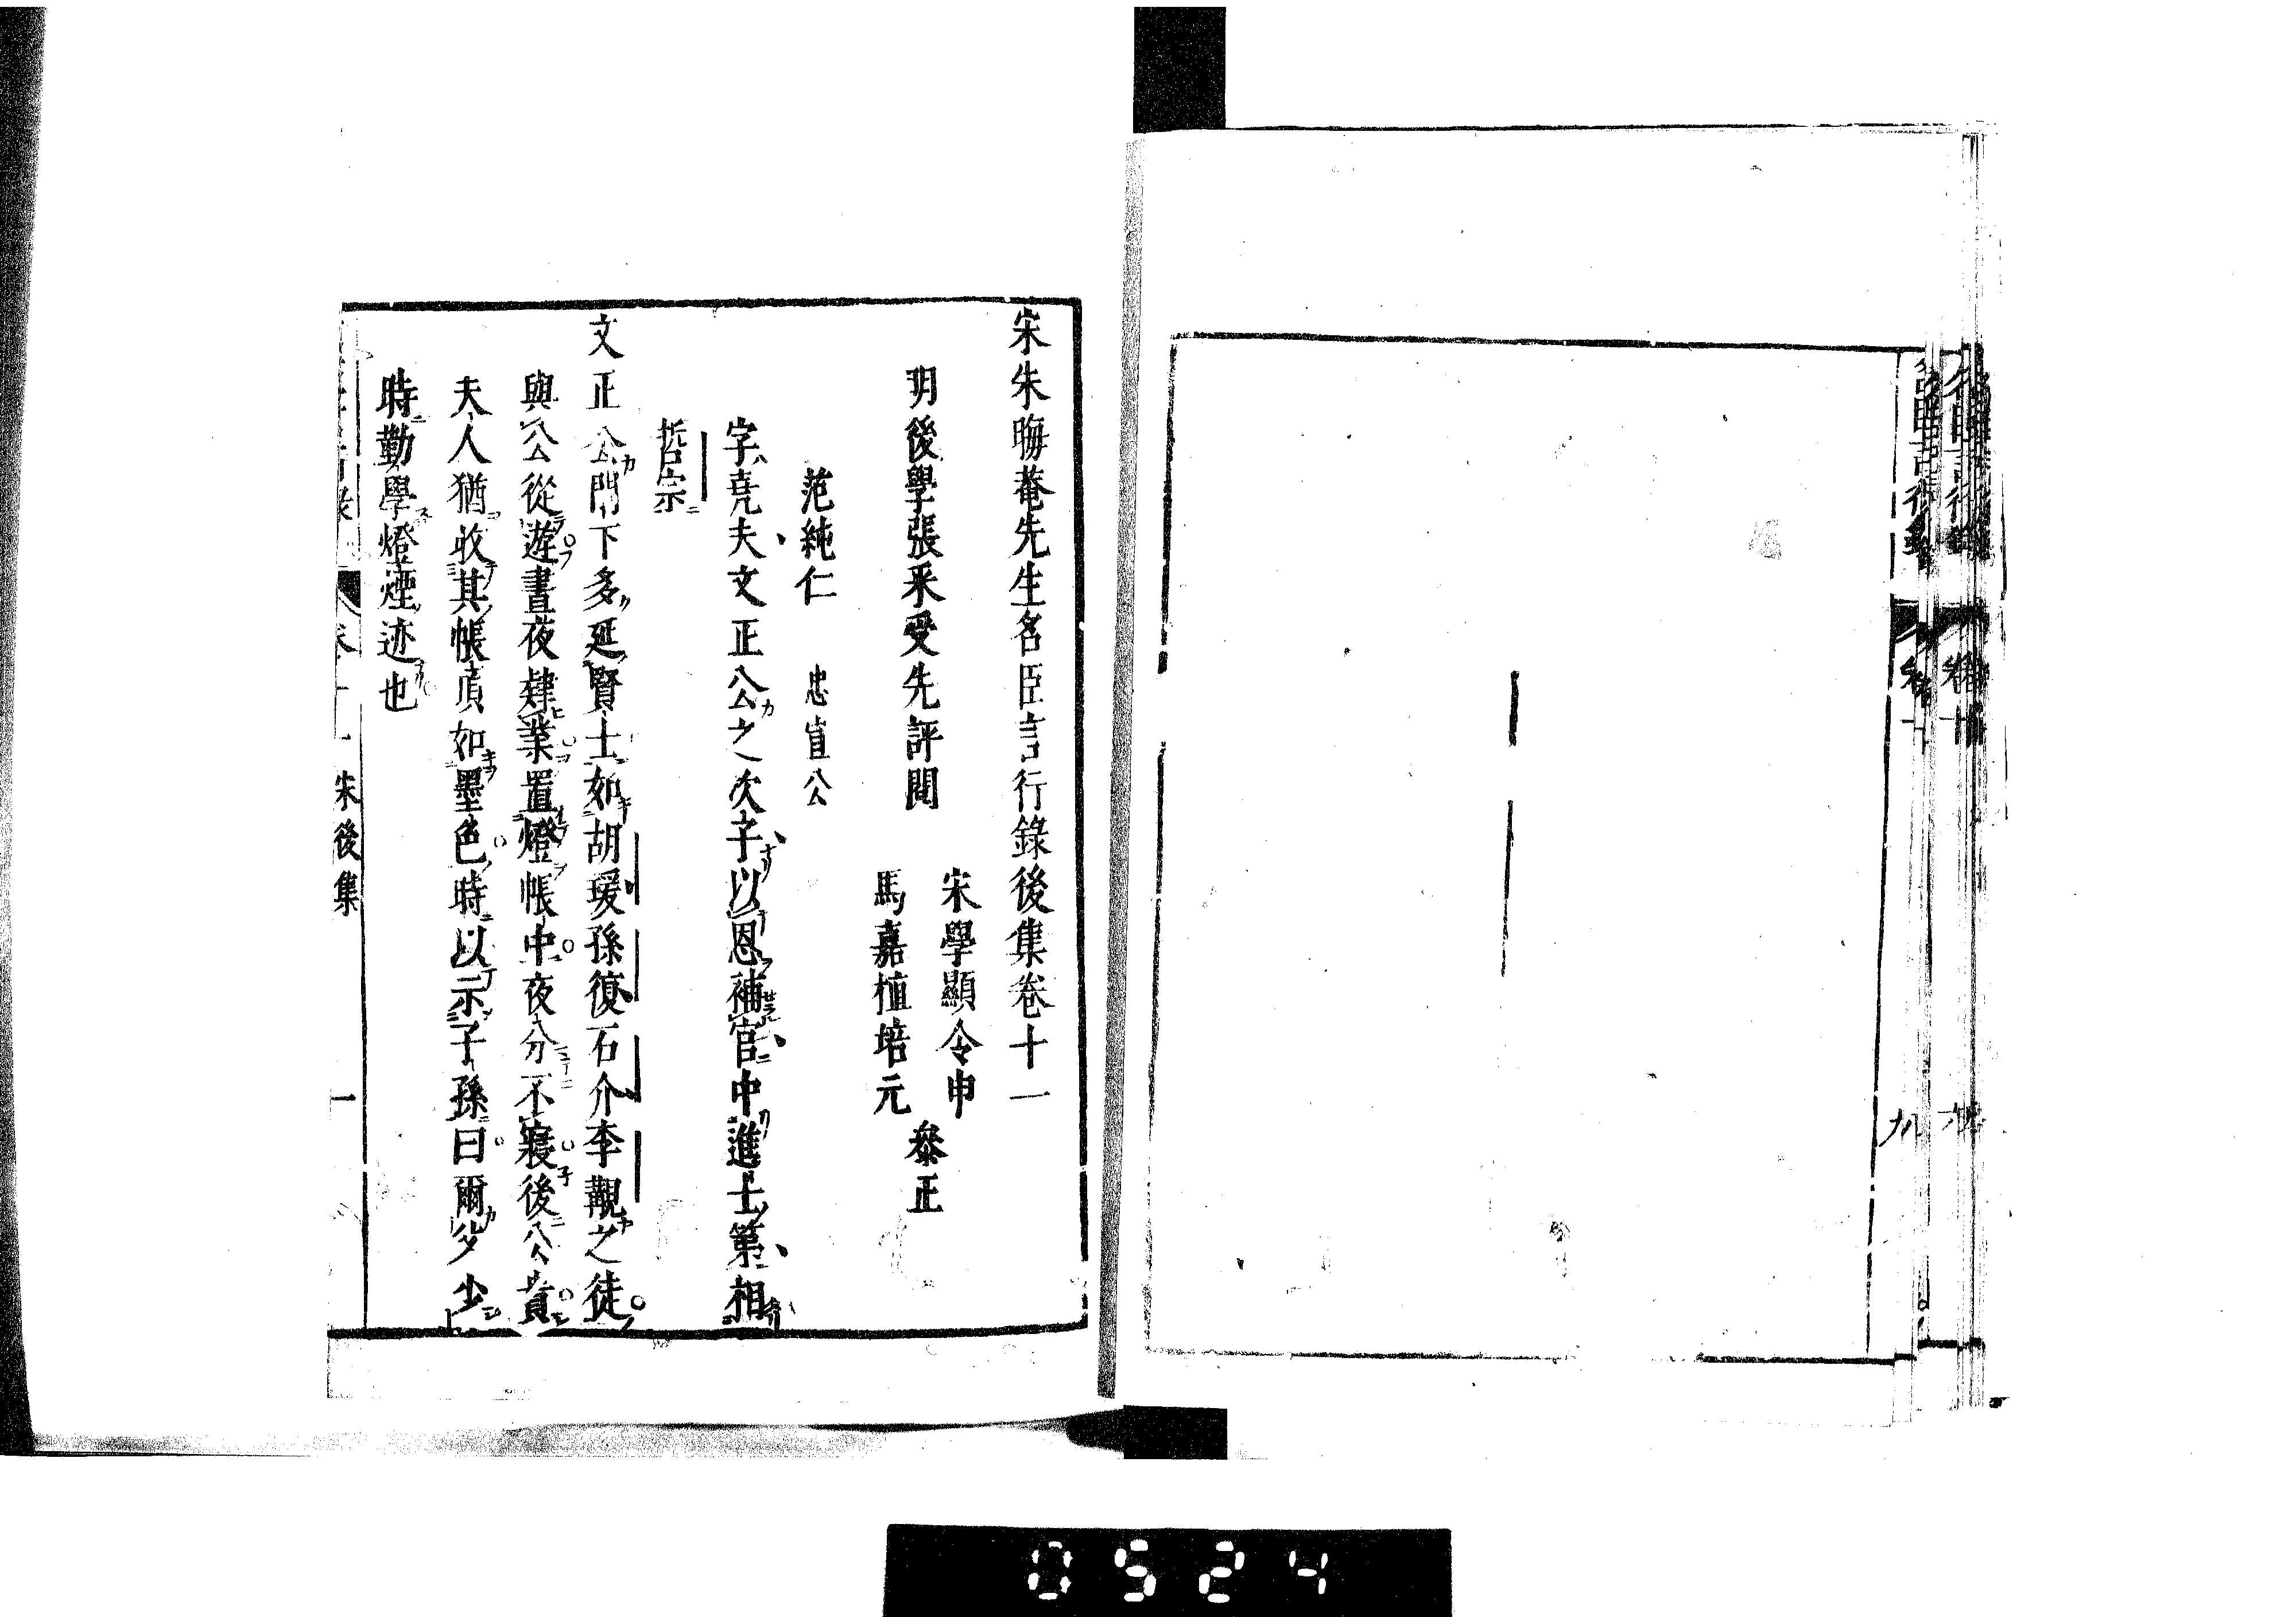 宋朱晦菴先生名臣言行錄後集卷十一
明後學張采受先評閱
宋學顯令申
馬嘉植培元
叅正
范純仁 忠宣公
字堯夫文正公之次子以恩補官中進士第相
哲宗
文正公門下多延賢士如胡瑗孫復石介李覯之徒
與公從遊晝夜肄業置燈帳中夜分不寢後公貴
夫人猶收其帳頂如墨色時以示子孫曰爾父少
時勤學燈煙迹也
卷十一 宋後集 一
0524